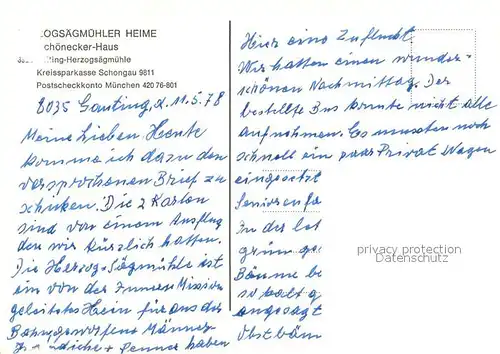 OGSÄGMÜHLER HEIME
chönecker-Haus
ting-Herzogsägmühle
Kreissparkasse Schongau 9811
Postscheckkonto München 420 76-801
8035 Gauting, d. 11.5.78
Meine Lieben Heute
komme ich dazu den
versprochenen Brief zu
schicken. Die 2 Karten
sind von einem Ausflug
den wir kürzlich hatten.
Die Herzog-Sägmühle ist
ein von der Inneren Mission
geleitetes Heim für aus der
Bahn geworfene Männer
haben
Hier eine Zuflucht
Wir hatten einen wunder-
schönen Nachmittag. Der
bestellte Bus konnte nicht alle
aufnehmen. Es mussten noch
schnell ein paar Privat Wagen
eingesetzt
Seniorenfa
In der let
grün ge
Bäume be
so kalt g
angesagt
Obstbäum
privacy protection
Datenschutz